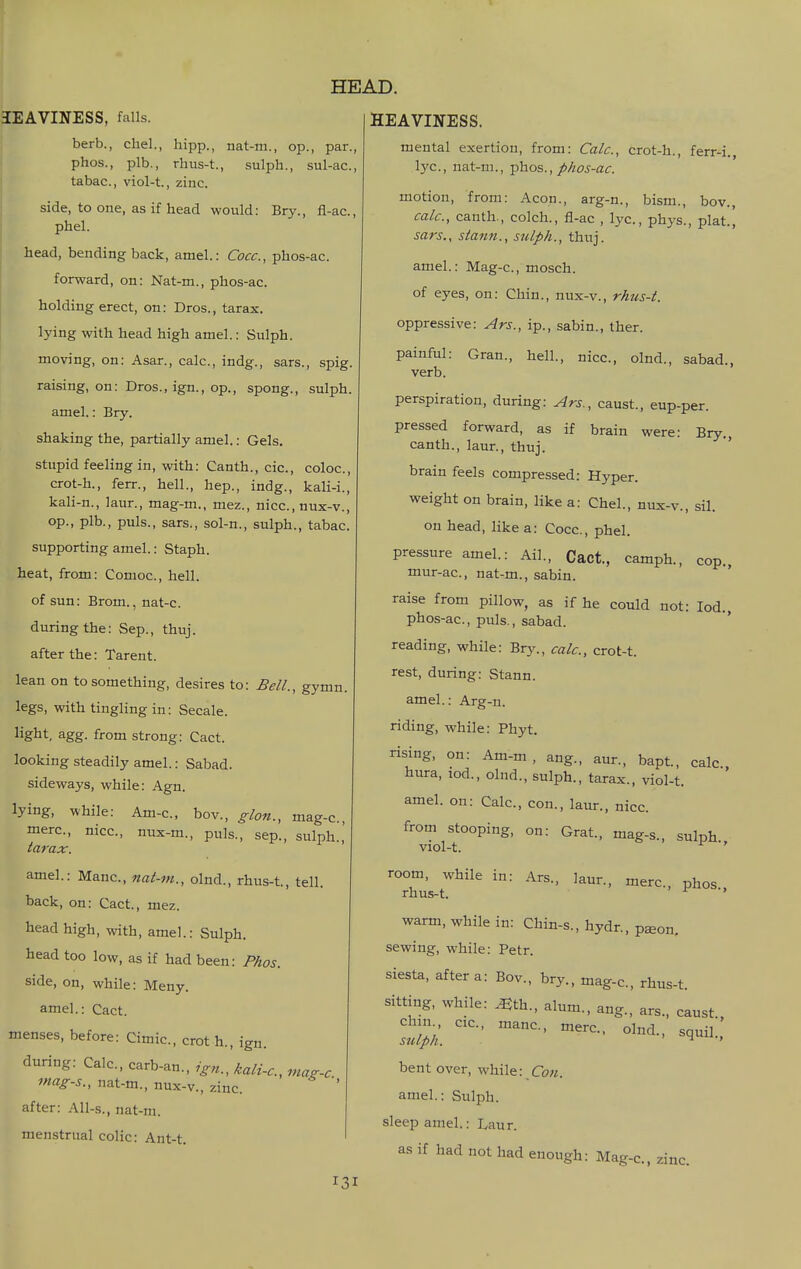 HEAD.
HEAVINESS, falls.
berb., chel., hipp., nat-m., op., par.,
phos., plb., rhus-t., sulph., sul-ac.,
tabac., viol-t., zinc.
side, to one, as if head would: Bry., fl-ac.,
phel.
head, bending back, amel.: Cocc., phos-ac.
forward, on: Nat-m., phos-ac.
holding erect, on: Dros., tarax.
lying with head high amel.: Sulph.
moving, on: Asar., calc., indg., sars., spig.
raising, on: Dros., ign., op., spong., sulph.
amel.: Bry.
shaking the, partially amel.: Gels.
stupid feeling in, with: Canth., cic., coloc.,
crot-h., ferr., hell., hep., indg., kali-i.,
kali-n., laur., mag-m., mez., nicc., nux-v.,
op., plb., puls., sars., sol-n., sulph., tabac.
supporting amel.: Staph.
heat, from: Comoc., hell.
of sun: Brom., nat-c.
during the: Sep., thuj.
after the: Tarent.
lean on to something, desires to: Bell., gymn.
legs, with tingling in: Secale.
light, agg. from strong: Cact.
looking steadily amel.: Sabad.
sideways, while: Agn.
lying, while: Am-c., bov., glon., mag-c.,
merc., nicc., nux-m., puls., sep., sulph.,
tarax.
amel.: Manc., nat-m., olnd., rhus-t., tell.
back, on: Cact., mez.
head high, with, amel.: Sulph.
head too low, as if had been: Phos.
side, on, while: Meny.
amel.: Cact.
menses, before: Cimic., crot h., ign.
during: Calc., carb-an., ign., kali-c., mag-c.,
mag-s., nat-m., nux-v., zinc.
after: All-s., nat-m.
menstrual colic: Ant-t.
HEAVINESS.
mental exertion, from: Calc., crot-h., ferr-i.,
lyc., nat-m., phos., phos-ac.
motion, from: Acon., arg-n., bism., bov.,
calc., canth., colch., fl-ac , lyc., phys., plat.,
sars., stann., sulph., thuj.
amel.: Mag-c., mosch.
of eyes, on: Chin., nux-v., rhus-t.
oppressive: Ars., ip., sabin., ther.
painful: Gran., hell., nicc., olnd., sabad.,
verb.
perspiration, during: Ars., caust., eup-per.
pressed forward, as if brain were: Bry.,
canth., laur., thuj.
brain feels compressed: Hyper.
weight on brain, like a: Chel., nux-v., sil.
on head, like a: Cocc., phel.
pressure amel.: Ail., Cact., camph., cop.,
mur-ac., nat-m., sabin.
raise from pillow, as if he could not: Iod.,
phos-ac., puls., sabad.
reading, while: Bry., calc., crot-t.
rest, during: Stann.
amel.: Arg-n.
riding, while: Phyt.
rising, on: Am-m , ang., aur., bapt., calc.,
hura, iod., olnd., sulph., tarax., viol-t.
amel. on: Calc., con., laur., nicc.
from stooping, on: Grat., mag-s., sulph.,
viol-t.
room, while in: Ars., laur., merc., phos.,
rhus-t.
warm, while in: Chin-s., hydr., pæon.
sewing, while: Petr.
siesta, after a: Bov., bry., mag-c., rhus-t.
sitting, while: Æth., alum., ang., ars., caust.,
chin., cic., manc., merc., olnd., squil.,
sulph.
bent over, while: Con.
amel.: Sulph.
sleep amel.: Laur.
as if had not had enough: Mag-c., zinc.
131